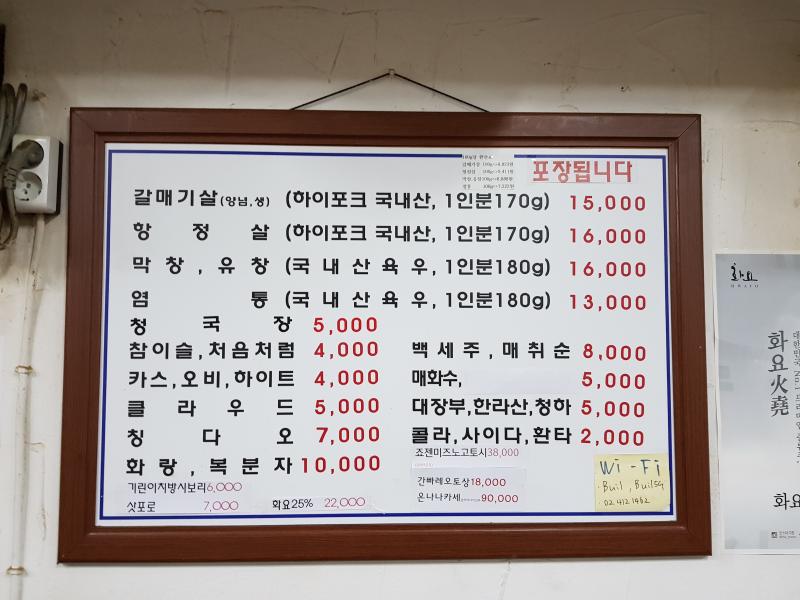 포장됩니다
갈매기살(양념,생) (하이포크 국내산, 1인분170g) 15,000
항 정 살 (하이포크 국내산, 1인분170g) 16,000
막창, 유창 (국내산육우, 1인분180g) 16,000
염 통 (국내산육우, 1인분180g) 13,000
청 국 장 5,000
참이슬,처음처럼 4,000
카스,오비,하이트 4,000
클 라 우 드 5,000
칭 다 오 7,000
화랑, 복분자 10,000
기린이치방시보리 6,000
삿포로 7,000
화요25% 22,000
백세주, 매취순 8,000
매화수, 5,000
대장부,한라산,청하 5,000
콜라,사이다,환타 2,000
죠젠미즈노고토시 38,000
간빠레오토상 18,000
온나나카세 90,000
Wi-Fi
Buil, Buil5G
02 412 1462
화요
HWAYO
화요火堯
화요